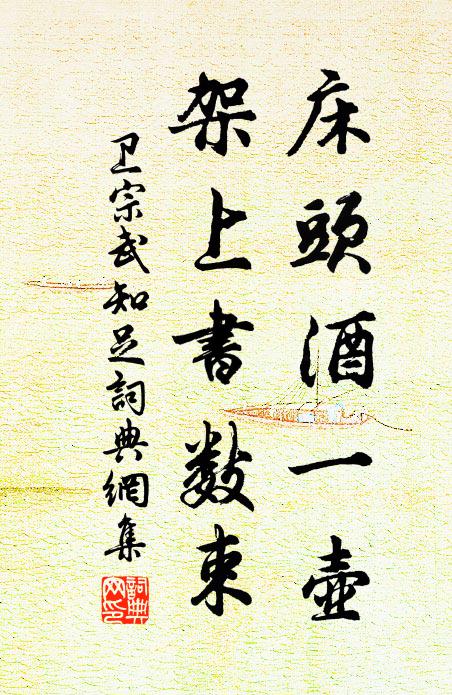 床頭酒一壺
架上書數束
卫宗武知足詞典網集
詞典网印